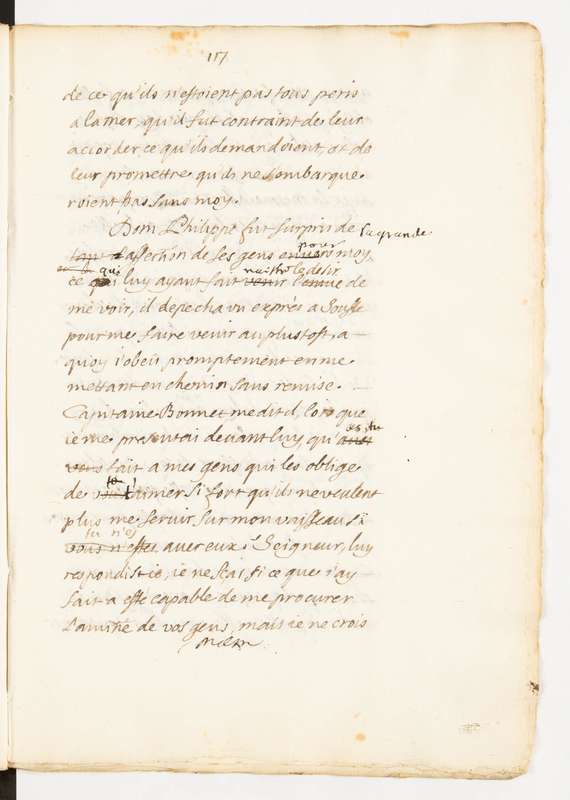 117
de ce qu'ils n'estoient pas tous peris
a la mer, qu'il fut contraint de leur
accorder ce qu'ils demandoient, et de
leur promettre qu'ils ne s'embarque
roient pas sans moy.
Dom Philippe fut surpris de la grande
tant d'affection de ses gens envers pour moy,
ce qui qui luy ayant fait venir naistre l'envie le desir de
me voir, il depecha un exprés a Souse
pour me faire venir au plustost, a
quoy j'obeis promptement en me
mettant en chemin sans remise.
Capitaine Bonnet me dit il, lors que
ie me presentai devant luy, qu'avez as tu
vous fait a mes gens qui les oblige
de vous te t'aimer si fort qu'ils ne veulent
plus me servir sur mon vaisseau si
vous n'estes tu n'es avec eux. Seigneur, luy
respondis ie, ie ne scai si ce que i'ay
fait a esté capable de me procurer
l'amitié de vos gens, mais ie ne crois